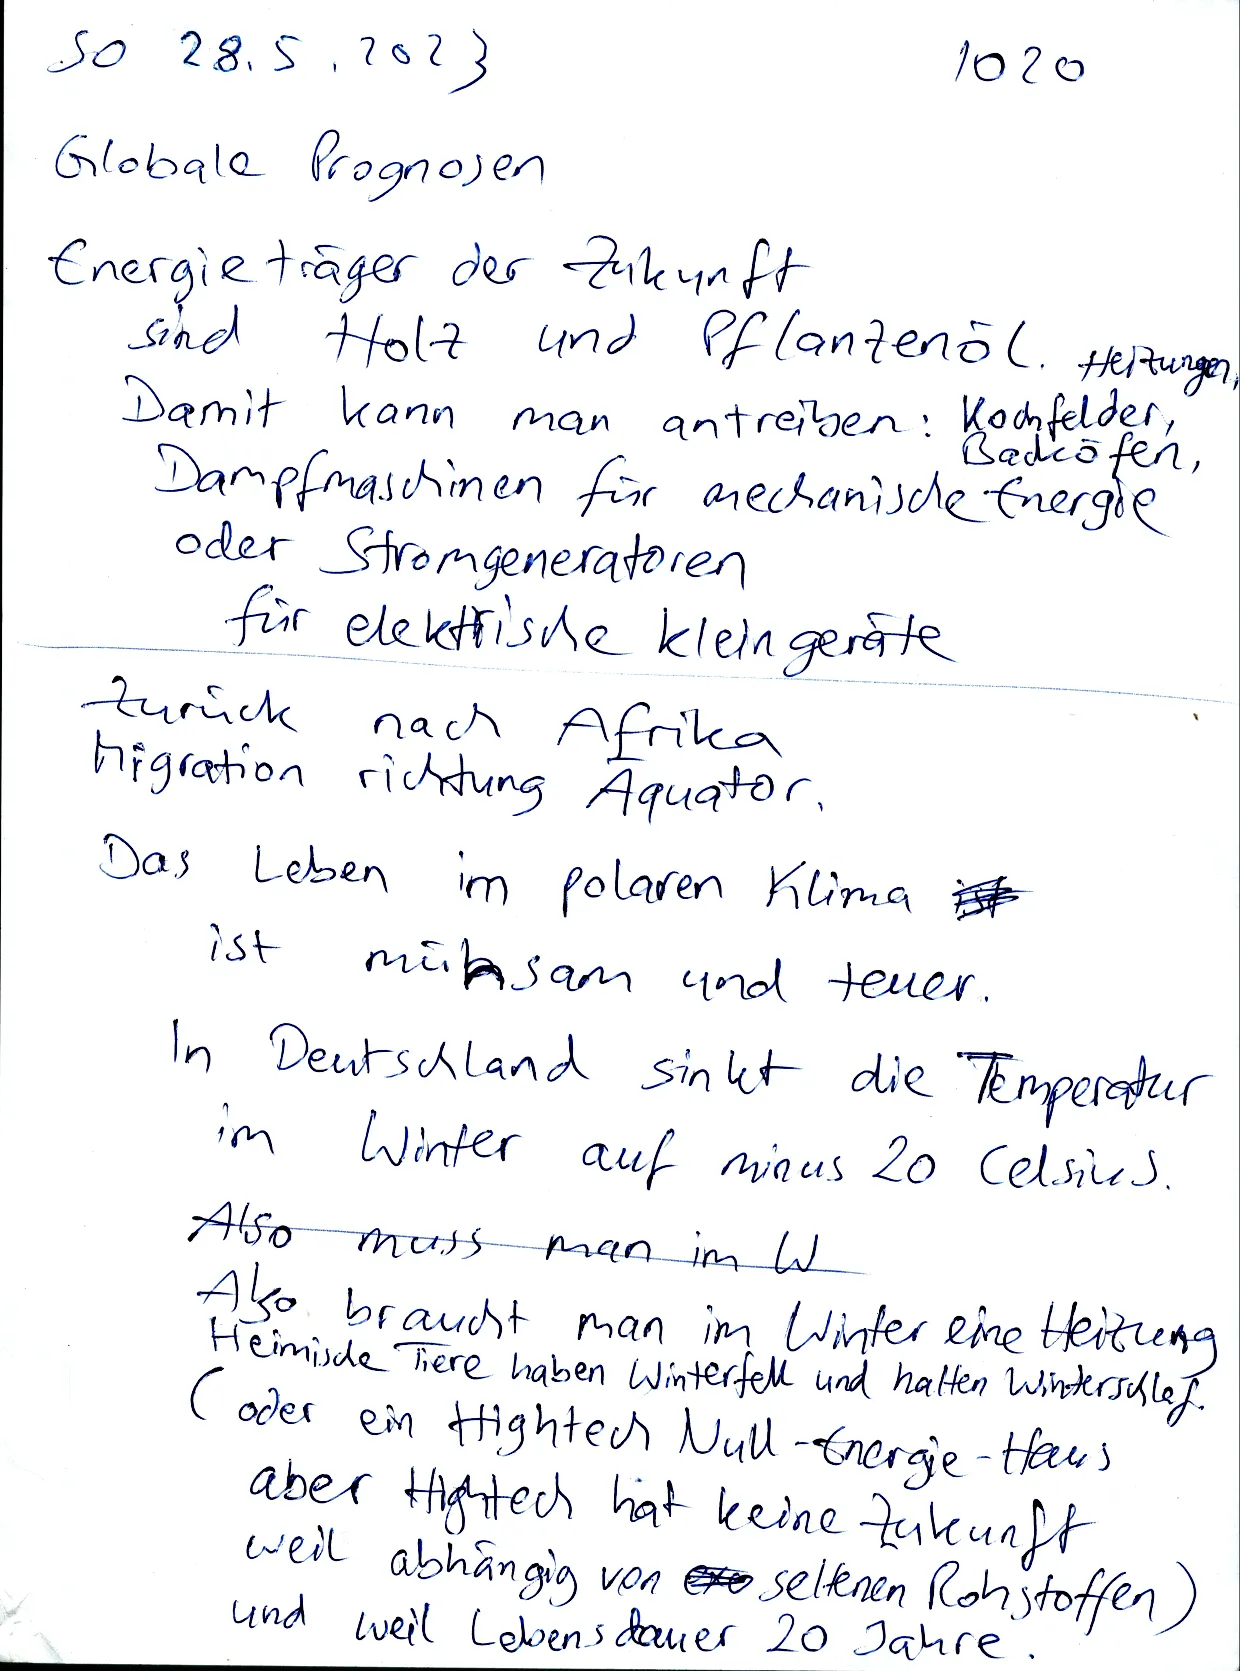 So 28.5.2023 1020
Globale Prognosen
Energieträger der Zukunft
sind Holz und Pflanzenöl.
Heizungen,
Damit kann man antreiben: Kochfelder,
Backöfen,
Dampfmaschinen für mechanische Energie
oder Stromgeneratoren
für elektrische kleingeräte
Zurück nach Afrika
Migration richtung Äquator.
Das Leben im polaren Klima ist
ist mühsam und teuer.
In Deutschland sinkt die Temperatur
im Winter auf minus 20 Celsius.
Also muss man im W
Also braucht man im Winter eine Heizung
Heimische Tiere haben Winterfell und halten Winterschlaf.
(oder ein Hightech Null-Energie-Haus
aber Hightech hat keine Zukunft
weil abhängig von seltenen Rohstoffen)
und weil Lebensdauer 20 Jahre.